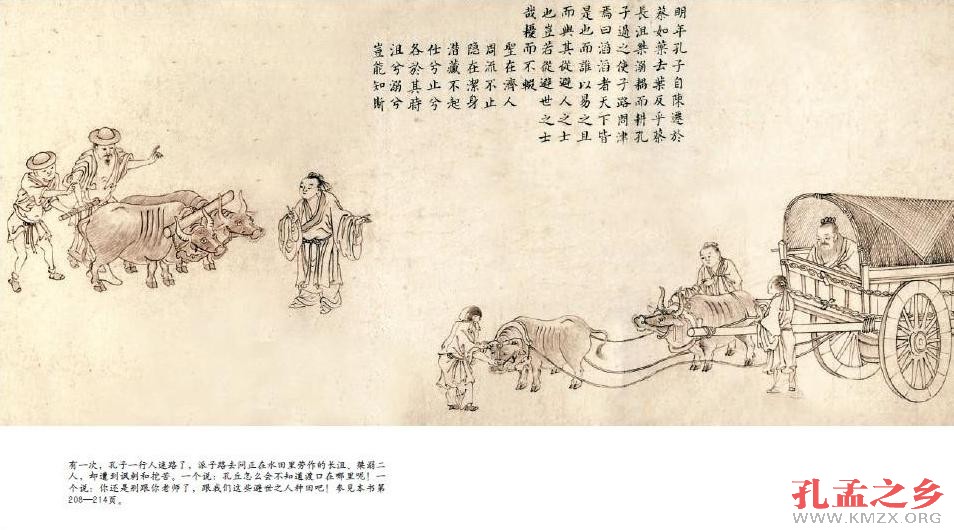 明年孔子自陳遷於
蔡如葉去葉反乎蔡
長沮桀溺耦而耕孔
子過之使子路問津
焉曰滔滔者天下皆
是也而誰以易之且
而與其從避人之士
也豈若從避世之士
哉耰而不輟
聖在濟人
周流不止
隐在潔身
潜藏不起
仕兮止兮
各於其時
沮兮溺兮
豈能知斯
有一次，孔子一行人迷路了，派子路去问正在水田里劳作的长沮、桀溺二
人，却遭到讽刺和挖苦。一个说：孔丘怎么会不知道渡口在哪里呢！一
个说：你还是别跟你老师了，跟我们这些避世之人种田吧！参见本书第
208—214页。
孔孟之乡
WWW.KMZX.ORG